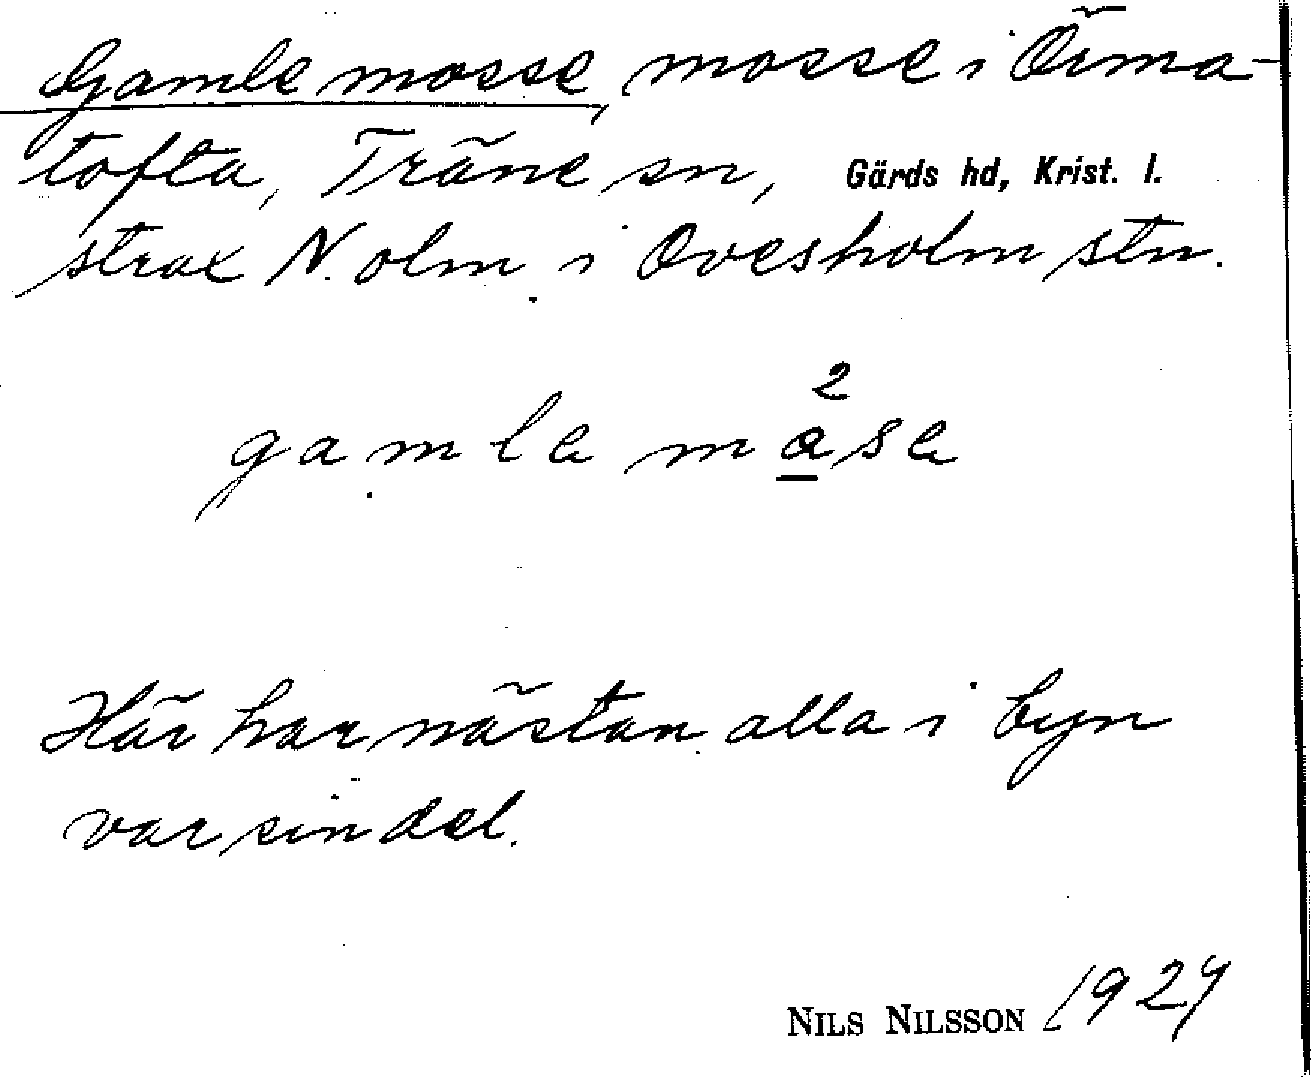 Gamle mosse, mosse i Örma-
tofta, Träne sn, Gärds hd, Krist. l.
strax N. om i Ovesholm stn.
gamle måse
2
Här har nästan alla i byn
var sin del.
NILS NILSSON 1927